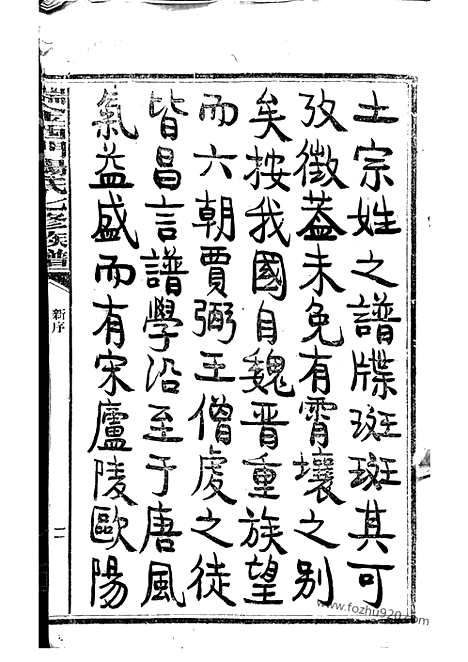 土宗姓之譜牒斑斑其可
攷徵蓋未免有霄壤之別
矣按我國自魏晉重族望
而六朝賈弼王僧虔之徒
皆昌言譜學沿至于唐風
氣益盛而有宋廬陵歐陽
氏七修族譜
新序
二
www.fozhu920.com